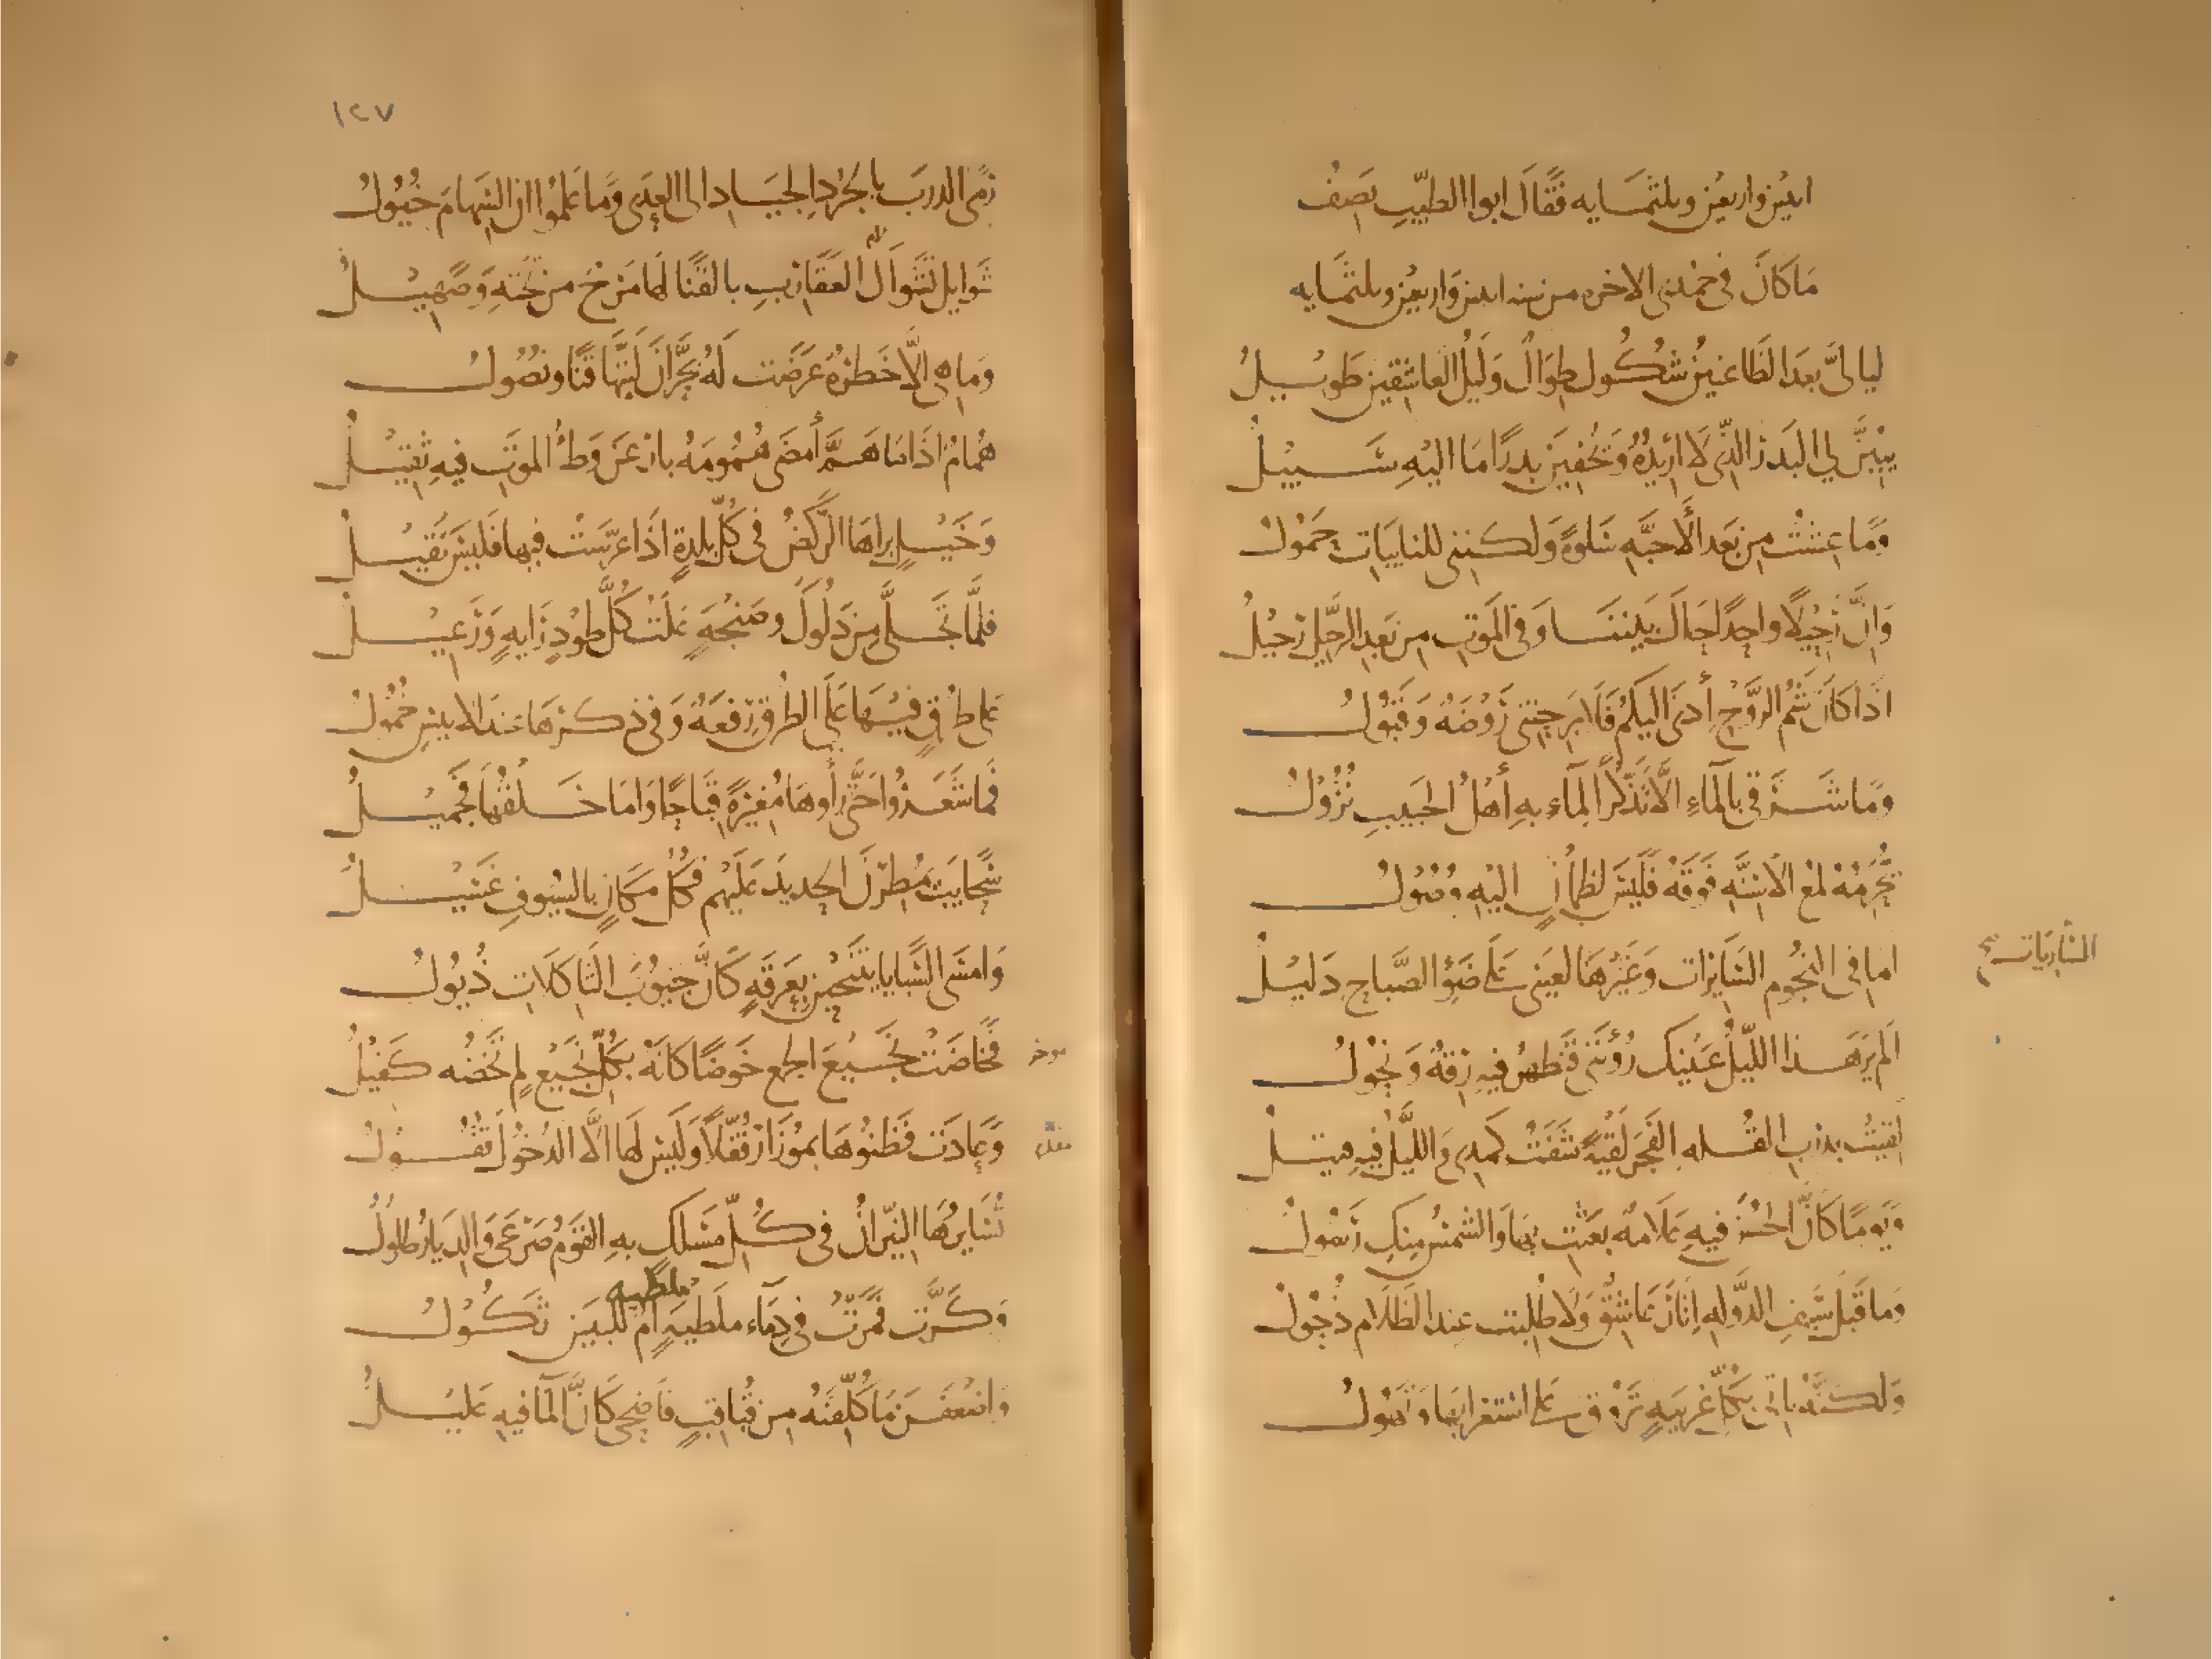 اثنين واربعين وثلثمايه فَقَالَ ابوا الطيّب يَصِفُ
مَا كَانَ في جمدى الاخره من سنه اثنين وَاربعين وثلثمايه
ليالىَّ بعدَ الظاعنينَ شُكُول طِوَالٌ وَلَيلُ العاشقين طَويلُ
يُبِنَّ لي البَدرَ الذّي لا ارِيدُهُ وَيُخفِينَ بدرًا مَا اليْهِ سَبِيْلُ
وَمَا عِشْتُ مِن بَعدِ الأحبَّهِ سَلوةً وَلكننى للنايبَاتِ حَمُولُ
وَانَّ رَحِيْلًا واحِدًا حَالَ بَيننَا وَفى المَوتِ مِن بَعدِ الرحَيلِ رَحِيْلُ
اذَا كَانَ شَمُّ الرَّوْحِ أدنَى اليكُمُ فَلَا بَرِحتنى رَوْضَهٌ وَقَبُولُ
وَمَا شَرَقى بالمآءِ الَّا تَذَكُّرًا لِمآءٍ بهِ أهْلُ الحَبيبِ نُزُوْلُ
يُحَرِّمُهُ لمْعُ الاسِنَّهِ فَوقَهُ فَلَيْسَ لظمأنٍ اليْهِ وُصُوْلُ
الساريَات صح
اما فى النجُومِ السَايرَات وَغَيْرِهَا لعَينى عَلَى ضَوْءِ الصَّباحِ دَليْلُ
اَلم يَرَ هَذا الليْلُ عَيْنيكِ رُؤْيَتى فَتَظهرَ فيهِ رِقةٌ وَنُحُولُ
لَقيْتُ بدَربِ القُلهِ الفَجرَ لَقْيَهً شَفَتْ كمَدِى وَالليْلُ فيهِ قتيلُ
وَيَومًا كَانَّ الحُسْنَ فيهِ عَلَامهٌ بعَثتِ بهَا وَالشمْسُ مِنكِ رَسُولُ
وَما قَبلَ سَيْفِ الدَّولهِ اثَّارَ عَاشِقٌ وَلَا طُلِبَت عِندَ الظَلَامِ ذُحُولُ
وَلكنَّهُ ياتى بكُلِّ غَريبَهٍ تَرُوْقُ عَلى اسْتغرابهَا وَتَهُولُ
١٢٧
رَمَى الدربَ بالجُرْدِ الجيَادِ الى العِدَى وَمَا عَلمُوا ان السِّهَامَ خُيُولُ
شَوايلَ تَشْوَالَ العَقَاربِ بالقَنَا لهَا مَرَحٌ من تَحْتهِ وَصَهِيْلُ
وَما هِى الَّا خَطْرَةٌ عَرَضَت لَهُ بحَرَّانَ لَبَّتْهَا قَنًا ونُصُولُ
هُمَامٌ اذَا مَا هَمَّ أَمضَى هُمُومَهُ بارْعَنَ وَطْءُ الموْتِ فيهِ ثَقيْلُ
وَخَيْلٍ بَراهَا الرَّكْضُ فى كُلّ بلدةٍ اذَا عَرَّسَتْ فيهَا فليْسَ تَقِيْلُ
فلَمَّا تجَلَّى مِن دَلُوْلٍ وصَنْجَهٍ عَلَتْ كُلَّ طَوْدٍ رَايهٌ وَرَعِيْلُ
على طُرُقٍ فيْهَا عَلَى الطُرْقِ رِفعَهٌ وَفى ذكرهَا عندَ الانيسِ خُمُولُ
فمَا شَعَرُوا حَتَّى رَأوهَا مُغِيْرَةً قِبَاحًا وَامَا خَلْقُهَا فَجَمِيْلُ
سَحَايبُ يُمْطِرْنَ الحديدَ عَلَيْهم فكُلُّ مَكَانٍ بالسُيُوفِ غَسِيْلُ
وَامسَى السَّبَايا يَنْتَحِبْنَ بعَرقَهٍ كَانَّ جيُوبَ الثَاكلَاتِ ذُيُولُ
فخَاضَتْ نجَيْعَ الجمعِ خَوضًا كانَهُ بكُلِّ نَجيْعٍ لم تَخُضْه كَفيْلُ
وَعَادَت فَظَنُوهَا بمَوْزَارَ قُفَّلًا وَلَيْس لهَا الَّا الدُخُولَ قُفُولُ
تُسَايرُهَا النيْرانُ فى كُلِّ مَسْلكٍ بهِ القَوْمُ صَرْعَى وَالدِيَارُ طلُولُ
ملطيه
وَكَرَّت فمَرَّتْ فى دِمَاءِ ملَطيَهٍ مَلطيَهُ اُمٌّ للبَنيْنَ ثَكُوْلُ
وَاضْعَفْنَ مَا كُلِّفْنَهُ مِن قُبَاقِبٍ فَاضحَى كَانَّ المآ فيهِ عَليْلُ